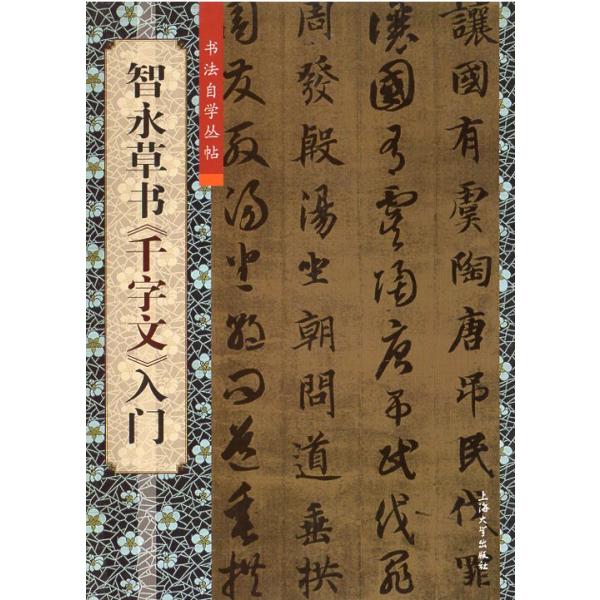 智永草书《千字文》入门
书法自学丛帖
讓國有虞陶唐吊民伐罪
讓國有虞陶唐吊民伐罪
周發殷湯坐朝問道垂拱
周發殷湯坐朝問道垂拱
上海大学出版社